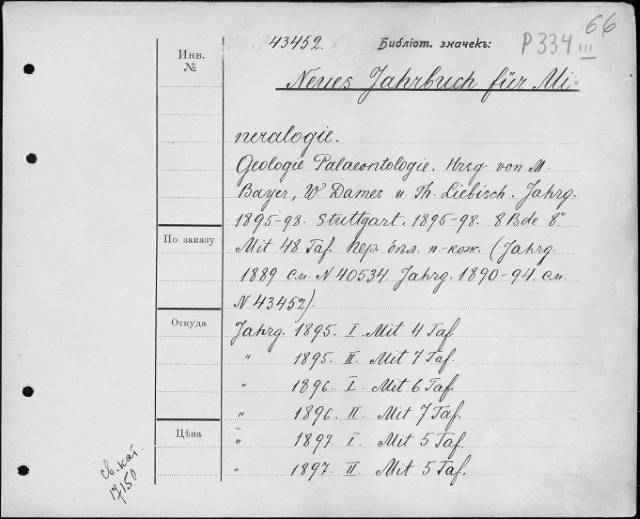 66
43452. Библіот. значекъ: P334 III
Инв.
№
Neues Jahrbuch für Mi-
neralogie.
Geologie Palaeontologie. Hrsg von M.
Bayer, W Dames u Th. Liebisch. Jahrg.
1895-98. Stuttgart. 1895-98. 8 Bde 8°
По заказу
Mit 48 Taf. пер бѣл. п-кож. (Jahrg.
1889 см. N 40534. Jahrg. 1890-94. см.
N 43452).
Откуда
Jahrg. 1895. I. Mit 4 Taf
" 1895. II. Mit 7 Taf.
" 1896. I. Mit 6 Taf.
" 1896. II. Mit 7 Taf.
Цѣна
" 1897. I. Mit 5 Taf.
" 1897. II. Mit 5 Taf.
св. кат.
17150